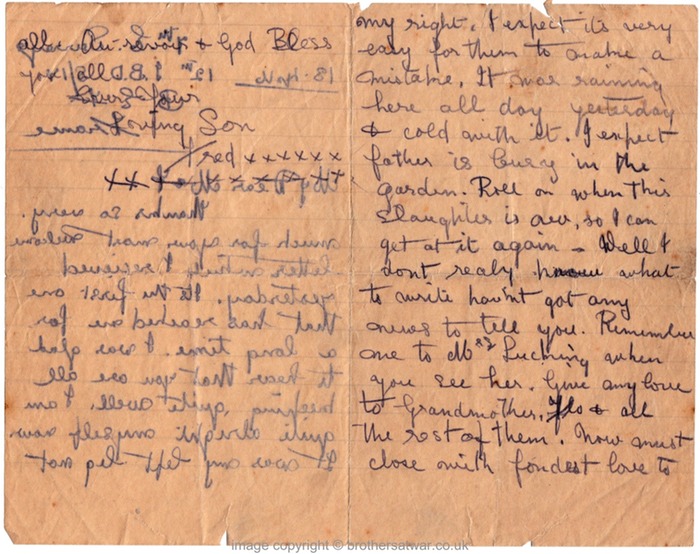 all. Au-Revoir & God Bless
Son
Fred x x x x x x x
x x
My Dear Mother
Thanks so very
much for your most welcome
letter which I recieved
yesterday. Its the first one
that has reached me for
a long time. I was glad
to hear that you are all
keeping quite well, I am
quite alright myself now
It was my left leg not
my right, I expect its very
easy for them to make a
mistake, It was raining
here all day yesterday
& cold with it. I expect
father is busy in the
garden. Roll on when this
slaughter is over, so I can
get at it again – Well I
dont realy know what
to write havnt got any
news to tell you. Remember
me to Mrs Luching when
you see her. Give my love
to Grandmother, Flo & all
the rest of them. Now must
close with fondest love to
image copyright © brothersatwar.co.uk